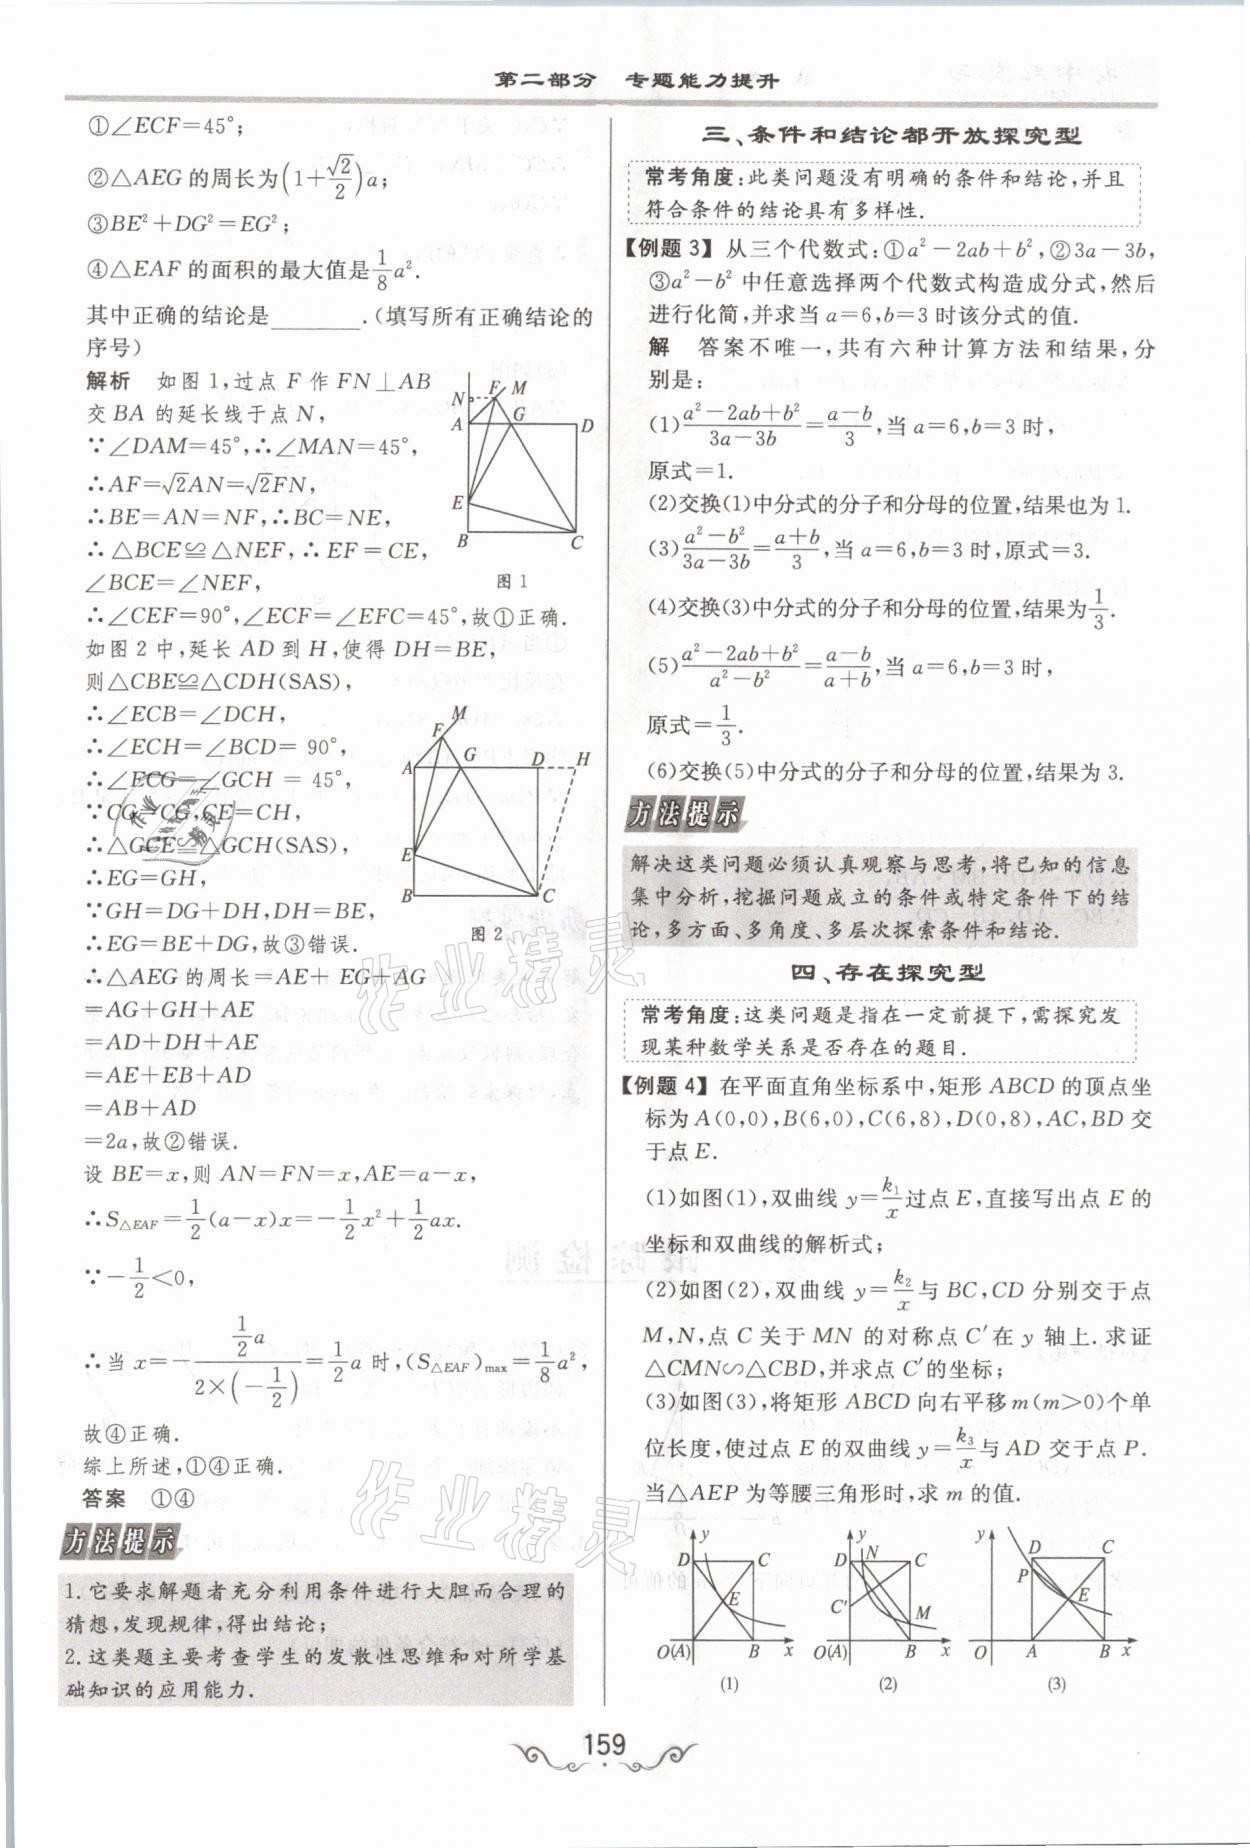 第二部分 专题能力提升
①∠ECF=45°;
②△AEG的周长为(1+√2/2)a;
③BE²+DG²=EG²;
④△EAF的面积的最大值是1/8a².
其中正确的结论是________.(填写所有正确结论的
序号)
解析 如图1,过点F作FN⊥AB
交BA的延长线于点N,
∵∠DAM=45°,∴∠MAN=45°,
∴AF=√2AN=√2FN,
∴BE=AN=NF,∴BC=NE,
∴△BCE≌△NEF,∴EF=CE,
∠BCE=∠NEF,
∴∠CEF=90°,∠ECF=∠EFC=45°,故①正确.
N F M
A G D
E
B C
图1
如图2中,延长AD到H,使得DH=BE,
则△CBE≌△CDH(SAS),
∴∠ECB=∠DCH,
∴∠ECH=∠BCD=90°,
∴∠ECG=∠GCH=45°,
∵CG=CG,CE=CH,
∴△GCE≌△GCH(SAS),
∴EG=GH,
∵GH=DG+DH,DH=BE,
∴EG=BE+DG,故③错误.
F M
A G D H
E
B C
图2
∴△AEG的周长=AE+EG+AG
=AG+GH+AE
=AD+DH+AE
=AE+EB+AD
=AB+AD
=2a,故②错误.
设BE=x,则AN=FN=x,AE=a-x,
∴S△EAF=1/2(a-x)x=-1/2x²+1/2ax.
∵-1/2<0,
∴当x=-(1/2a)/(2×(-1/2))=1/2a时,(S△EAF)max=1/8a²,
故④正确.
综上所述,①④正确.
答案 ①④
方法提示
1.它要求解题者充分利用条件进行大胆而合理的
猜想,发现规律,得出结论;
2.这类题主要考查学生的发散性思维和对所学基
础知识的应用能力.
三、条件和结论都开放探究型
常考角度:此类问题没有明确的条件和结论,并且
符合条件的结论具有多样性.
【例题3】从三个代数式:①a²-2ab+b²,②3a-3b,
③a²-b²中任意选择两个代数式构造成分式,然后
进行化简,并求当a=6,b=3时该分式的值.
解 答案不唯一,共有六种计算方法和结果,分
别是:
(1)(a²-2ab+b²)/(3a-3b)=(a-b)/3,当a=6,b=3时,
原式=1.
(2)交换(1)中分式的分子和分母的位置,结果也为1.
(3)(a²-b²)/(3a-3b)=(a+b)/3,当a=6,b=3时,原式=3.
(4)交换(3)中分式的分子和分母的位置,结果为1/3.
(5)(a²-2ab+b²)/(a²-b²)=(a-b)/(a+b),当a=6,b=3时,
原式=1/3.
(6)交换(5)中分式的分子和分母的位置,结果为3.
方法提示
解决这类问题必须认真观察与思考,将已知的信息
集中分析,挖掘问题成立的条件或特定条件下的结
论,多方面、多角度、多层次探索条件和结论.
四、存在探究型
常考角度:这类问题是指在一定前提下,需探究发
现某种数学关系是否存在的题目.
【例题4】在平面直角坐标系中,矩形ABCD的顶点坐
标为A(0,0),B(6,0),C(6,8),D(0,8),AC,BD交
于点E.
(1)如图(1),双曲线y=k₁/x过点E,直接写出点E的
坐标和双曲线的解析式;
(2)如图(2),双曲线y=k₂/x与BC,CD分别交于点
M,N,点C关于MN的对称点C′在y轴上.求证
△CMN∽△CBD,并求点C′的坐标;
(3)如图(3),将矩形ABCD向右平移m(m>0)个单
位长度,使过点E的双曲线y=k₃/x与AD交于点P.
当△AEP为等腰三角形时,求m的值.
y D C E O(A) B x
(1)
y D N C C′ M O(A) B x
(2)
y D C P E O A B x
(3)
159
作业精灵
作业精灵
作业精灵